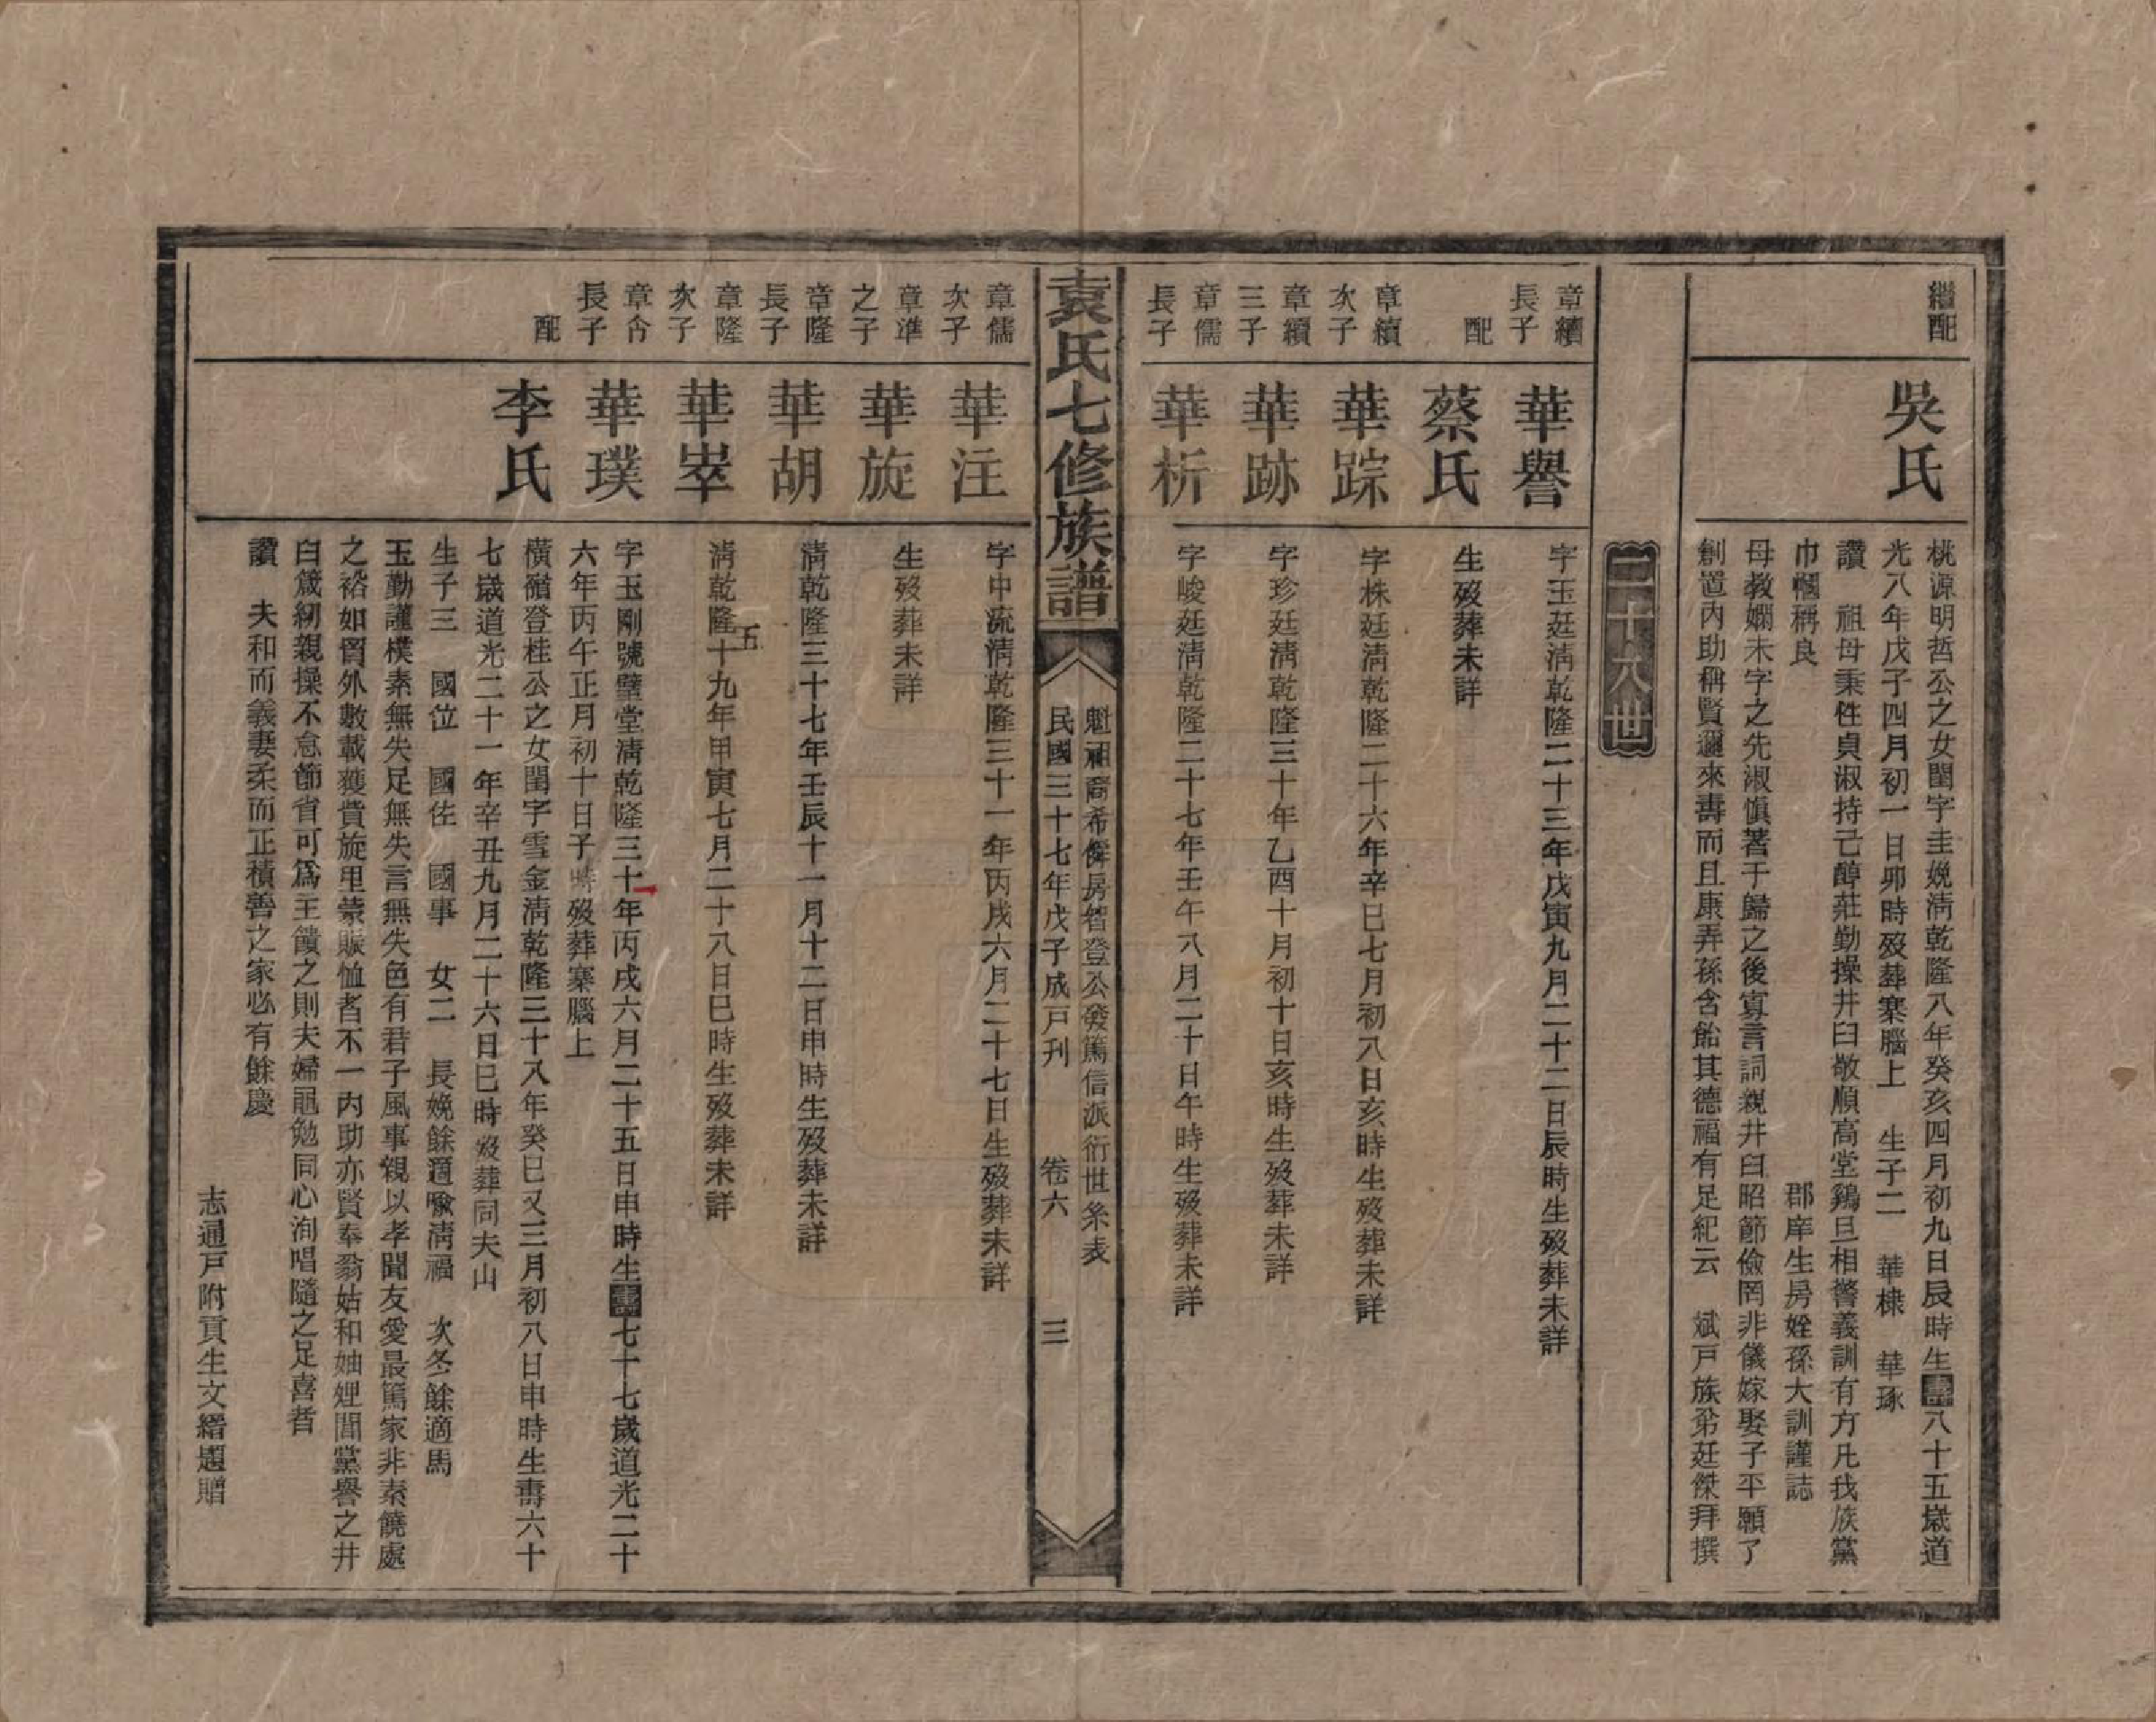 繼配
吳氏
桃源明哲公之女閨字圭娩淸乾隆八年癸亥四月初九日辰時生壽八十五歲道
光八年戊子四月初一日卯時歿葬寨腦上　生子二　華棣　華琢
讚　祖母秉性貞淑持己醇莊勤操井臼敬順高堂鷄旦相警義訓有方凡我族黨
巾幗稱良　郡庠生房姪孫大訓謹誌
母教嫻未字之先淑愼著于歸之後寡言詞親井臼昭節儉罔非儀嫁娶子平願了
創置內助稱賢邇來壽而且康弄孫含飴其德福有足紀云　斌戸族弟廷傑拜撰
二十八世
章續
長子
華譽
字玉廷淸乾隆二十三年戊寅九月二十二日辰時生歿葬未詳
配
蔡氏
生歿葬未詳
章續
次子
華踪
字株廷淸乾隆二十六年辛巳七月初八日亥時生歿葬未詳
章續
三子
華跡
字珍廷淸乾隆三十年乙酉十月初十日亥時生歿葬未詳
章儒
長子
華析
字峻廷淸乾隆二十七年壬午八月二十日午時生歿葬未詳
袁氏七修族譜
魁祖裔希僯房智登公發篤信派衍世系表
民國三十七年戊子成戸刋　卷六　三
章儒
次子
華注
字中流淸乾隆三十一年丙戌六月二十七日生歿葬未詳
章準
之子
華旋
生歿葬未詳
章隆
長子
華胡
淸乾隆三十七年壬辰十一月十二日申時生歿葬未詳
章隆
次子
華崒
淸乾隆五十九年甲寅七月二十八日巳時生歿葬未詳
章佾
長子
華璞
字玉剛號璧堂淸乾隆三十年丙戌六月二十五日申時生壽七十七歲道光二十
六年丙午正月初十日子時歿葬寨腦上
配
李氏
橫嶺登桂公之女閨字雪金淸乾隆三十八年癸巳又三月初八日申時生壽六十
七歲道光二十一年辛丑九月二十六日巳時歿葬同夫山
生子三　國位　國佐　國事　女二　長娩餘適喩淸福　次冬餘適馬
玉勤謹樸素無失足無失言無失色有君子風事親以孝聞友愛最篤家非素饒處
之裕如賈外數載獲貲旋里蒙賑恤者不一內助亦賢奉翁姑和妯娌閭黨譽之井
臼箴紉親操不怠節省可爲王饋之則夫婦黽勉同心洵唱隨之足喜者
讚　夫和而義妻柔而正積善之家必有餘慶
志通戸附貢生文縉題贈